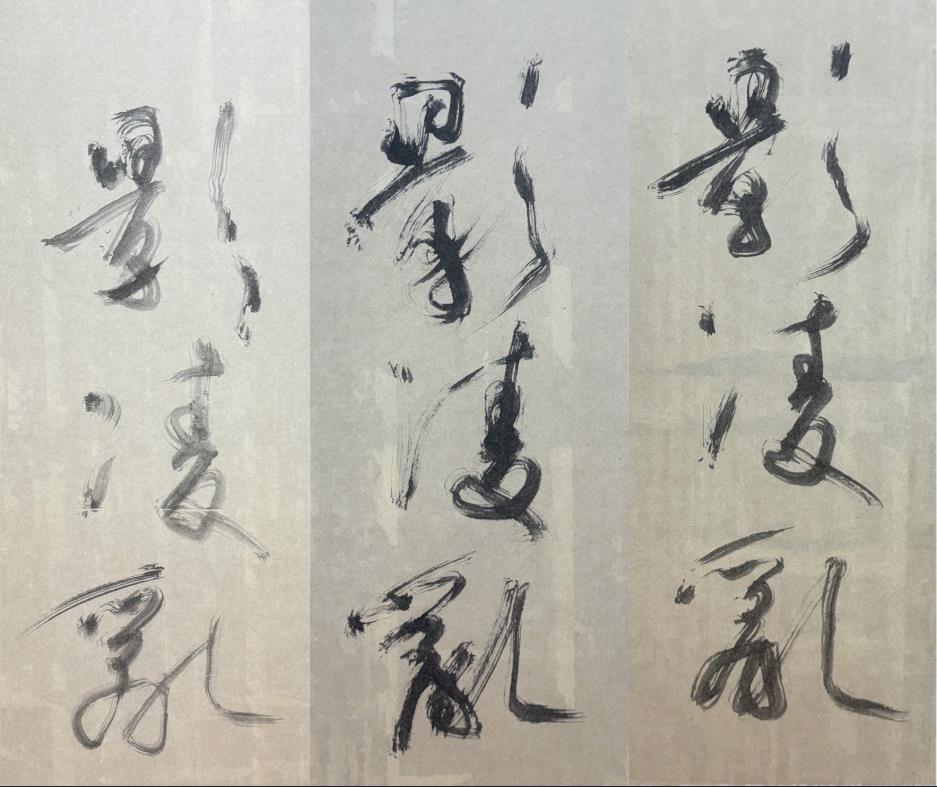 影凌乱
影凌亂
影凌亂